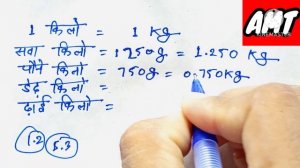 AMT
1 किलो = 1 kg
सवा किलो = 1250g = 1.250 kg
पौने किलो = 750g = 0.750kg
डेढ़ किलो =
ढ़ाई किलो =
1.2 5.3